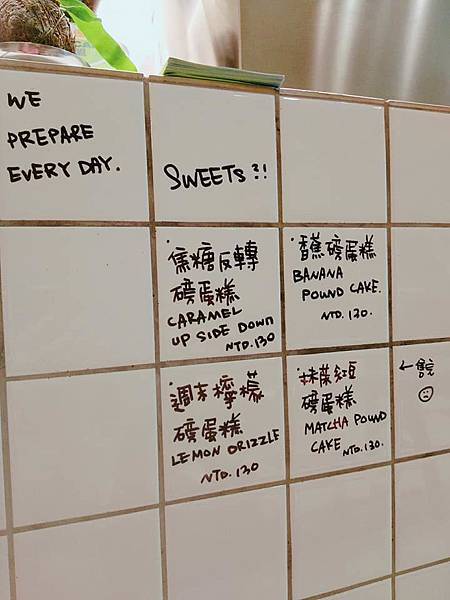 WE
PREPARE
EVERY DAY.
SWEETS ?!
·焦糖反轉
磅蛋糕
CARAMEL
UP SIDE DOWN
NTD.130
·香蕉磅蛋糕
BANANA
POUND CAKE.
NTD.130.
·週末檸檬
磅蛋糕
LEMON DRIZZLE
NTD.130
·抹茶紅豆
磅蛋糕
MATCHA POUND
CAKE. NTD.130.